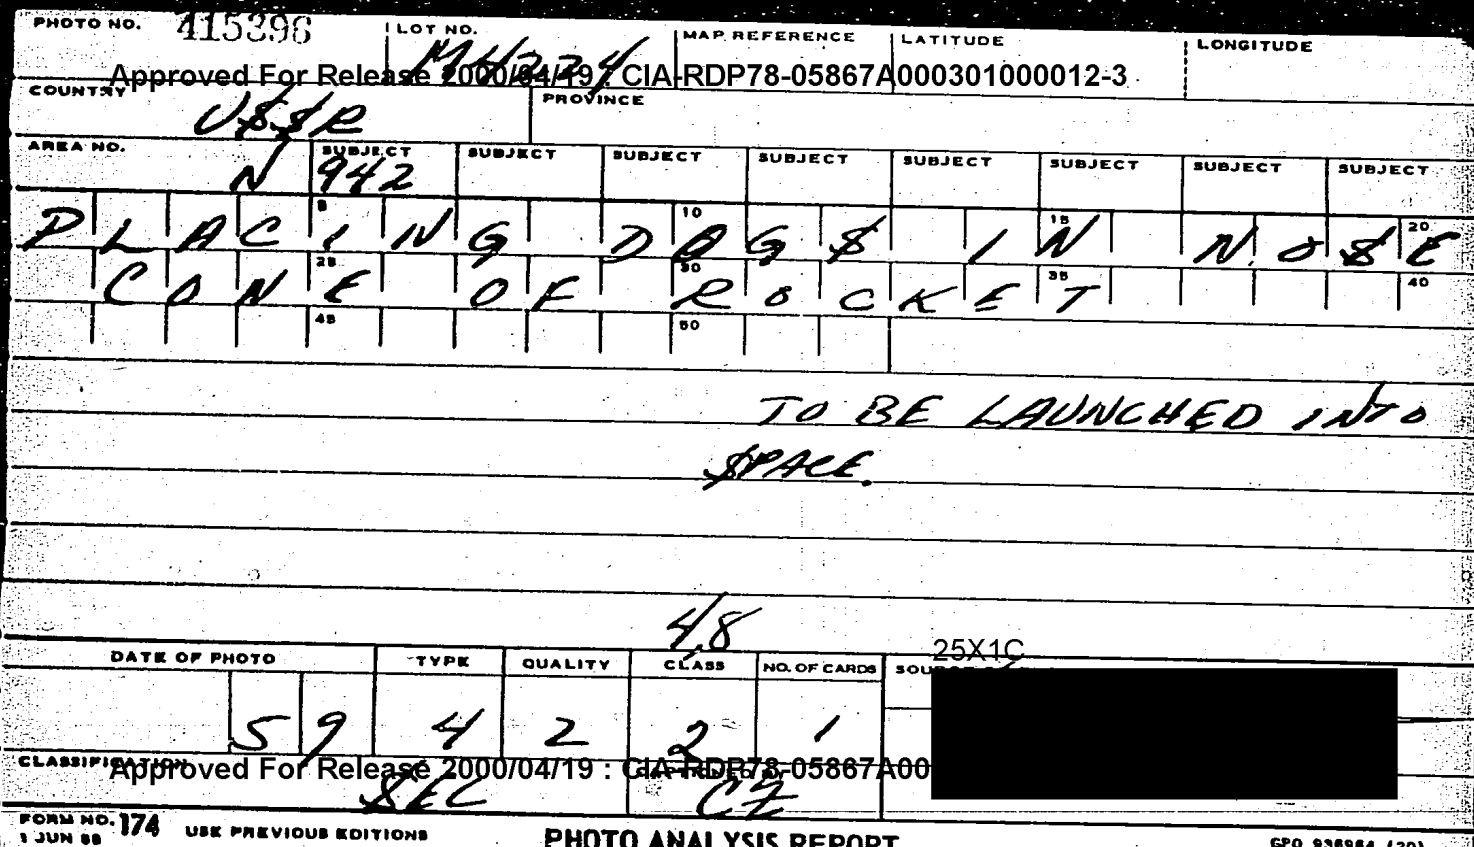 PHOTO NO. 415396 LOT NO. MAP REFERENCE LATITUDE LONGITUDE
Approved For Release 2000/04/19 : CIA-RDP78-05867A000301000012-3
COUNTRY U$$R PROVINCE
AREA NO. N SUBJECT 942 SUBJECT SUBJECT SUBJECT SUBJECT SUBJECT SUBJECT SUBJECT
5 10 15 20
PLACING DOG$ IN NO$E
25 30 35 40
CONE OF ROCKET
45 50
TO BE LAUNCHED INTO
$PACE.
4/8
25X1C
DATE OF PHOTO TYPE QUALITY CLASS NO. OF CARDS
59 4 2 2 1
CLASSIFICATION
Approved For Release 2000/04/19 : CIA-RDP78-05867A00
$EC
FORM NO. 174 USE PREVIOUS EDITIONS PHOTO ANALYSIS REPORT
1 JUN